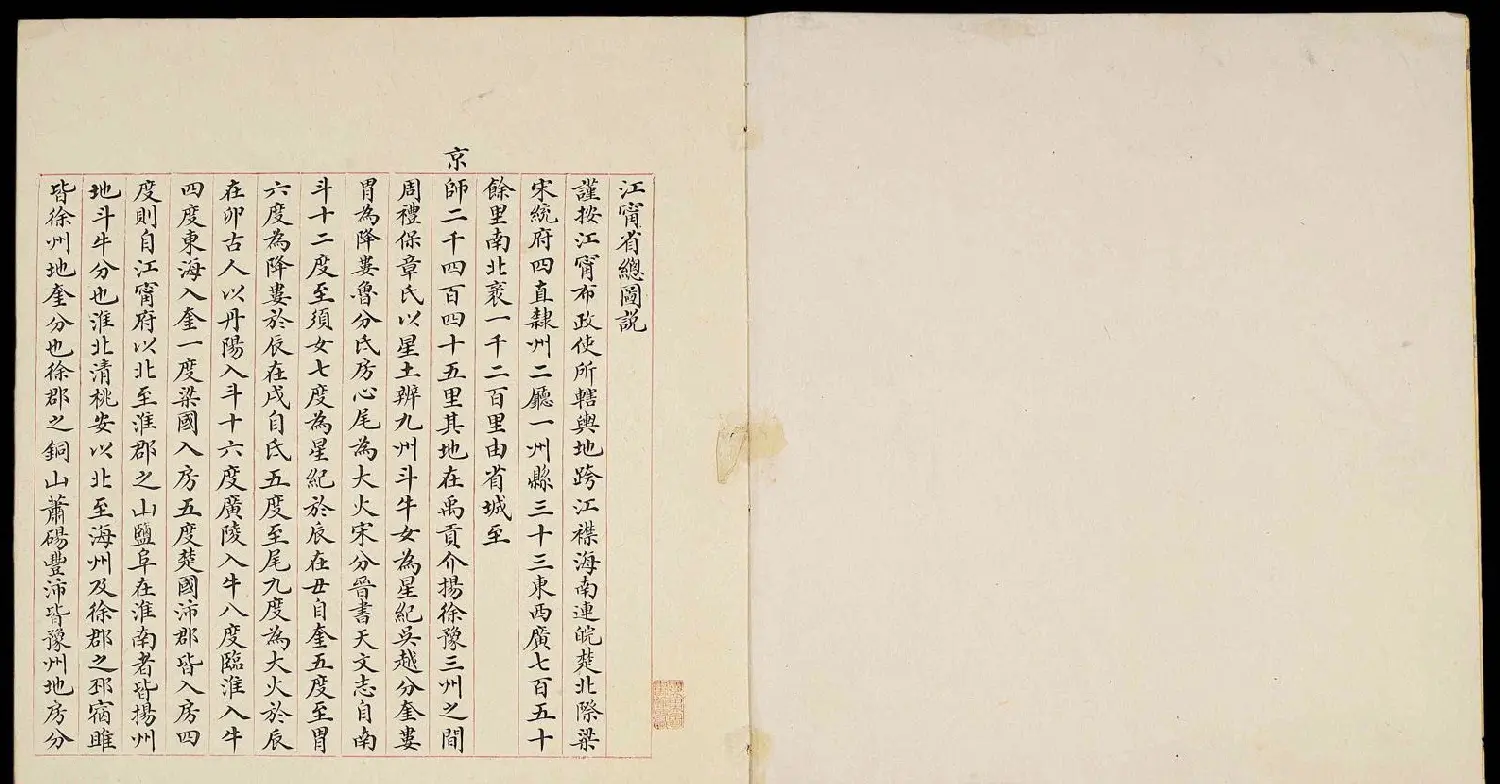 江甯省總圖説
謹按江甯布政使所轄輿地跨江襟海南連皖楚北際梁
宋統府四直隸州二廳一州縣三十三東西廣七百五十
餘里南北袤一千二百里由省城至
京師二千四百四十五里其地在禹貢介揚徐豫三州之間
周禮保章氏以星土辨九州斗牛女為星紀吳越分奎婁
胃為降婁魯分氐房心尾為大火宋分晉書天文志自南
斗十二度至須女七度為星紀於辰在丑自奎五度至胃
六度為降婁於辰在戌自氐五度至尾九度為大火於辰
在卯古人以丹陽入斗十六度廣陵入牛八度臨淮入牛
四度東海入奎一度梁國入房五度楚國沛郡皆入房四
度則自江甯府以北至淮郡之山鹽阜在淮南者皆揚州
地斗牛分也淮北清桃安以北至海州及徐郡之邳宿睢
皆徐州地奎分也徐郡之銅山蕭碭豐沛皆豫州地房分